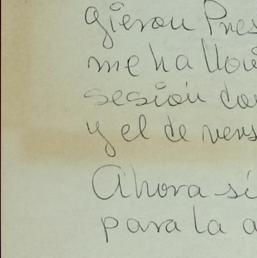 gieron Pres
me ha llovi
sesión con
y el de vers
Ahora si
para la a